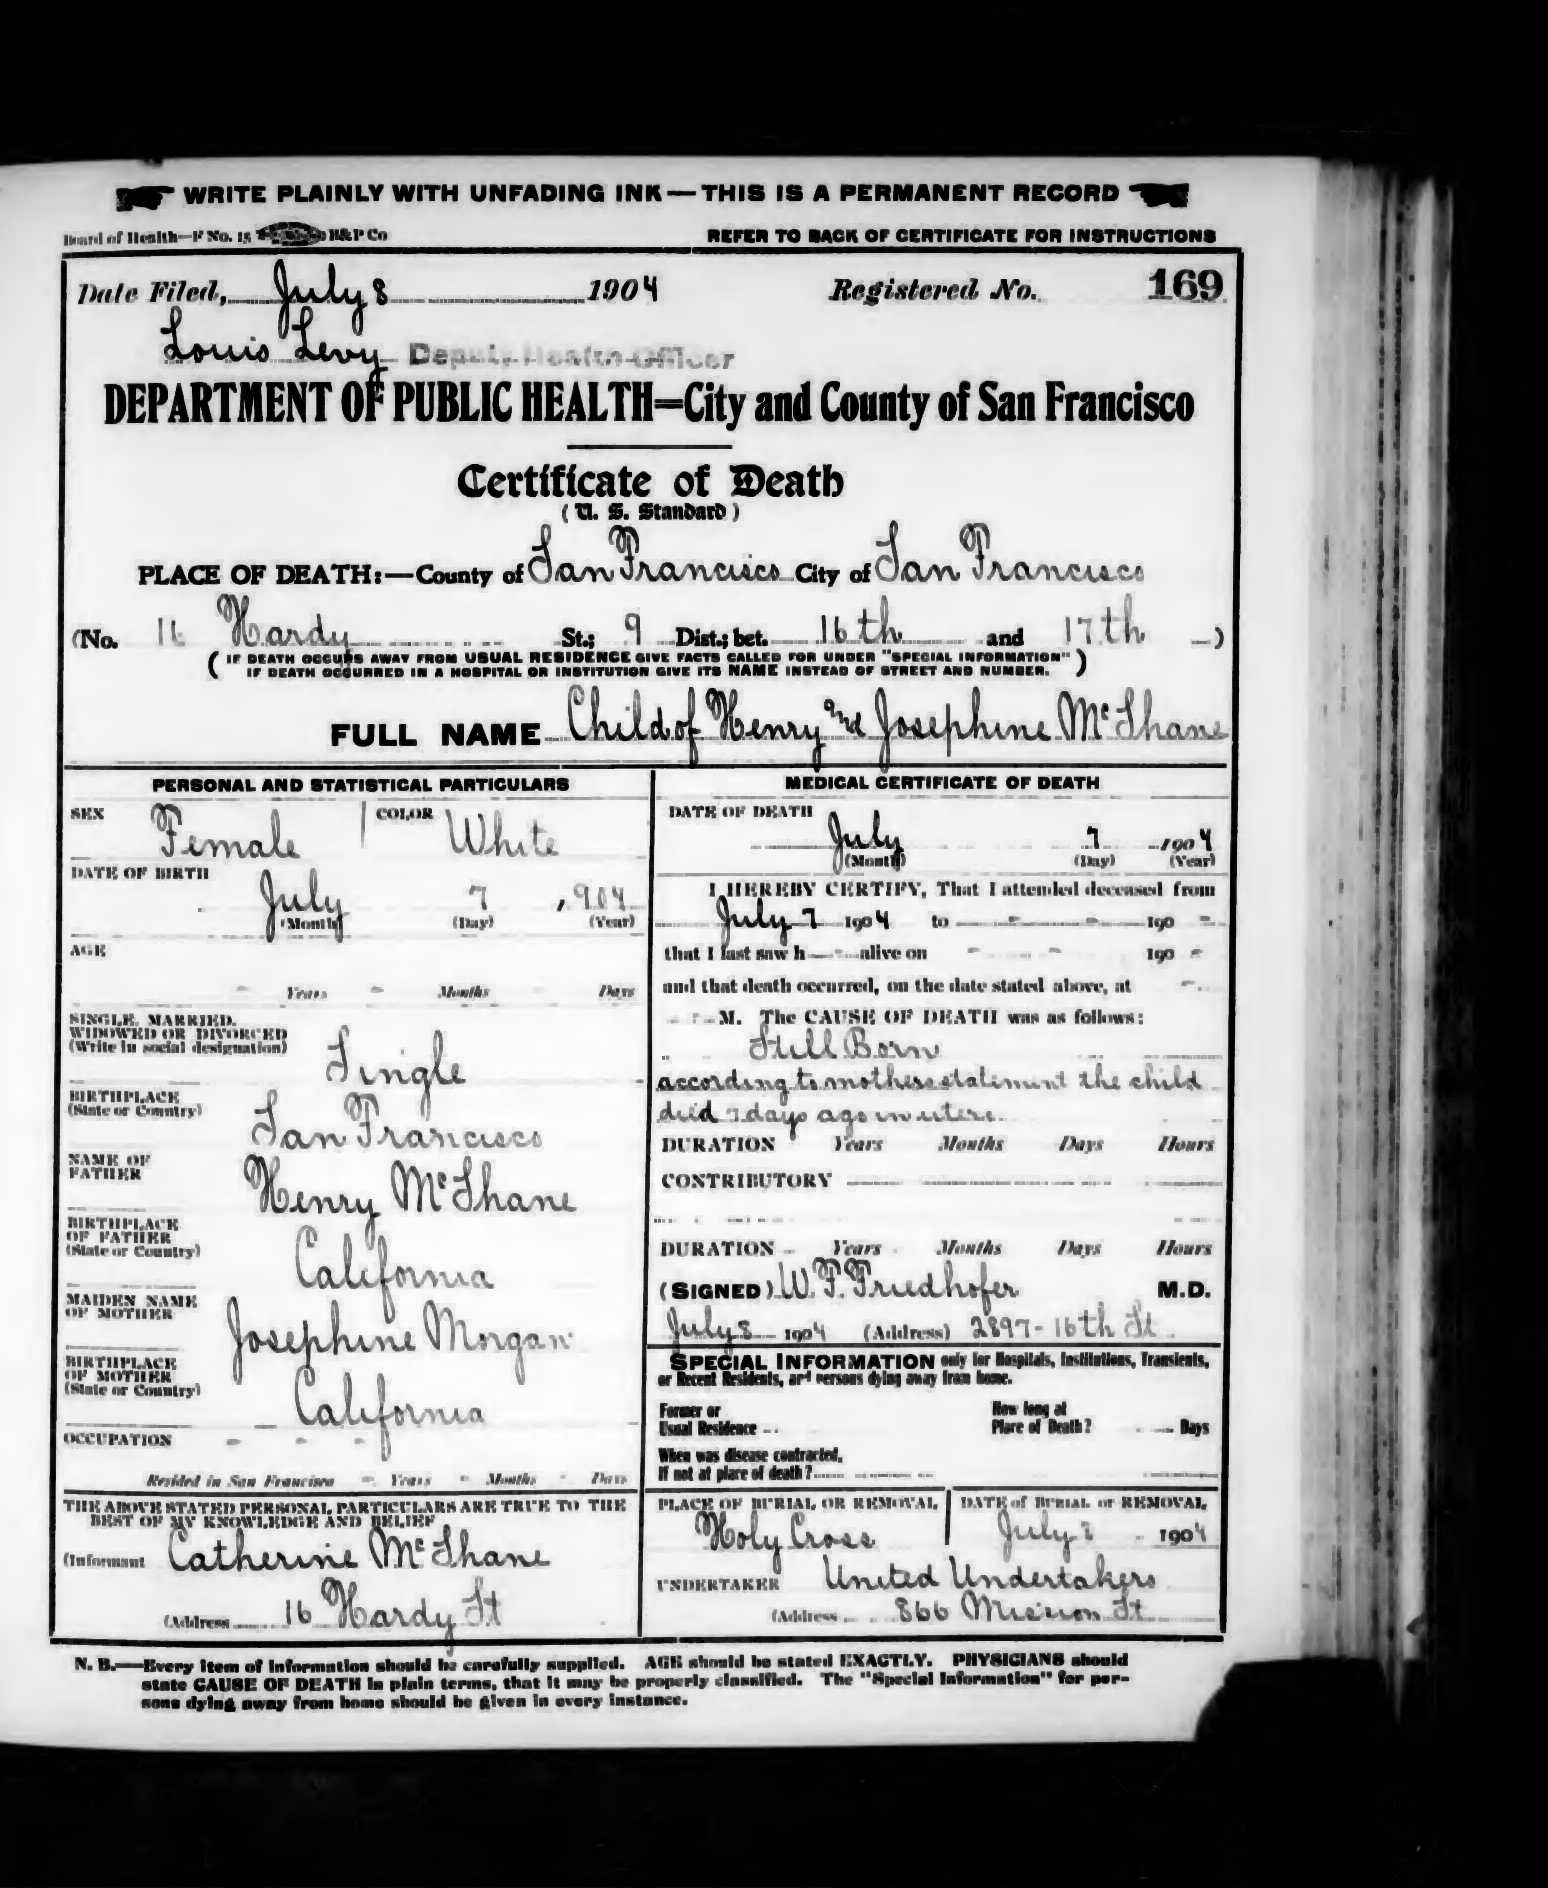 WRITE PLAINLY WITH UNFADING INK — THIS IS A PERMANENT RECORD
Board of Health—F No. 15 H&P Co REFER TO BACK OF CERTIFICATE FOR INSTRUCTIONS
Date Filed, July 8 1904 Registered No. 169
Louis Levy Deputy Health Officer
DEPARTMENT OF PUBLIC HEALTH=City and County of San Francisco
Certificate of Death
( U. S. Standard )
PLACE OF DEATH:—County of San Francisco City of San Francisco
(No. 16 Hardy St.; 9 Dist.; bet. 16th and 17th )
( IF DEATH OCCURS AWAY FROM USUAL RESIDENCE GIVE FACTS CALLED FOR UNDER "SPECIAL INFORMATION"
IF DEATH OCCURRED IN A HOSPITAL OR INSTITUTION GIVE ITS NAME INSTEAD OF STREET AND NUMBER. )
FULL NAME Child of Henry and Josephine McShane
PERSONAL AND STATISTICAL PARTICULARS
SEX Female COLOR White
DATE OF BIRTH
July 7, 904
(Month) (Day) (Year)
AGE
Years Months Days
SINGLE, MARRIED,
WIDOWED OR DIVORCED
(Write in social designation)
Single
BIRTHPLACE
(State or Country)
San Francisco
NAME OF
FATHER
Henry McShane
BIRTHPLACE
OF FATHER
(State or Country)
California
MAIDEN NAME
OF MOTHER
Josephine Morgan
BIRTHPLACE
OF MOTHER
(State or Country)
California
OCCUPATION - - -
Resided in San Francisco - Years - Months - Days
THE ABOVE STATED PERSONAL PARTICULARS ARE TRUE TO THE
BEST OF MY KNOWLEDGE AND BELIEF
(Informant Catherine McShane
(Address 16 Hardy St
MEDICAL CERTIFICATE OF DEATH
DATE OF DEATH
July 7 1904
(Month) (Day) (Year)
I HEREBY CERTIFY, That I attended deceased from
July 7 1904 to - - 190 -
that I last saw h - alive on - - 190 -
and that death occurred, on the date stated above, at -
- M. The CAUSE OF DEATH was as follows:
Still Born
according to mothers statement the child
died days ago in utero.
DURATION Years Months Days Hours
CONTRIBUTORY
DURATION Years Months Days Hours
(SIGNED) W. F. Friedhofer M.D.
July 8 1904 (Address) 2897-16th St
SPECIAL INFORMATION only for Hospitals, Institutions, Transients,
or Recent Residents, and persons dying away from home.
Former or
Usual Residence
How long at
Place of Death? Days
When was disease contracted,
If not at place of death?
PLACE OF BURIAL OR REMOVAL
Holy Cross
DATE of BURIAL or REMOVAL
July 1904
UNDERTAKER United Undertakers
(Address 866 Mission St
N. B.—Every item of information should be carefully supplied. AGE should be stated EXACTLY. PHYSICIANS should
state CAUSE OF DEATH in plain terms, that it may be properly classified. The "Special Information" for per-
sons dying away from home should be given in every instance.